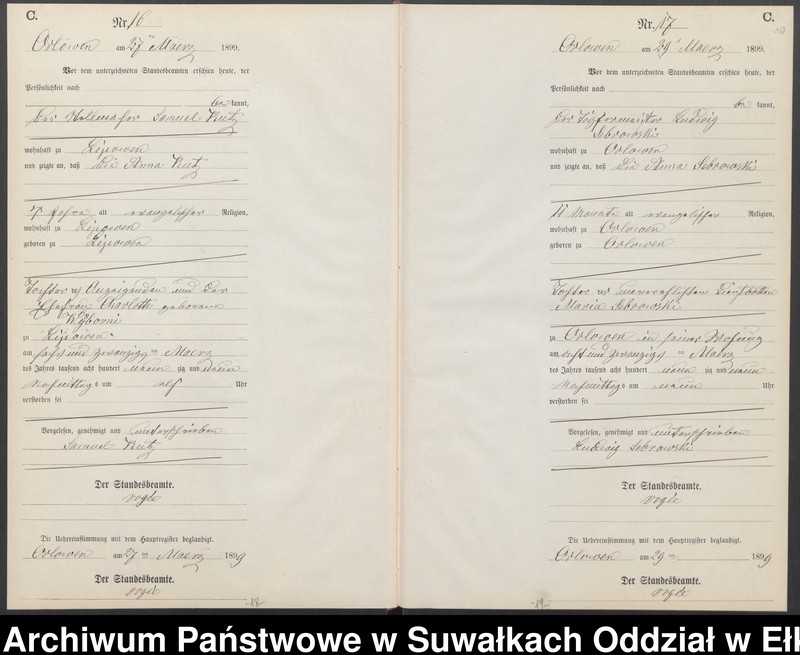 C.
Nr. 16
Orlowen am 27ten Maerz 1899.
Vor dem unterzeichneten Standesbeamten erschien heute, der
Persönlichkeit nach
be kannt,
Der Samuel Kutz
wohnhaft zu Lipowen
und zeigte an, daß Die Anna Kutz
7 Jahre alt evangelischer Religion,
wohnhaft zu Lipowen
geboren zu Lipowen
Tochter des Anzeigenden und der
Ehefrau Charlotte geborene
zu Lipowen
am und zwanzigsten Maerz
des Jahres tausend acht hundert neun zig und neun
Nachmittags um elf Uhr
verstorben sei
Vorgelesen, genehmigt und unterschrieben
Samuel Kutz
Der Standesbeamte.
Vogle
Die Uebereinstimmung mit dem Hauptregister beglaubigt.
Orlowen am 27ten Maerz 1899
Der Standesbeamte.
Vogle
C.
Nr. 17
Orlowen am 29ten Maerz 1899.
Vor dem unterzeichneten Standesbeamten erschien heute, der
Persönlichkeit nach
be kannt,
Der Töpfermeister Ludwig
Sebrowski
wohnhaft zu Orlowen
und zeigte an, daß Die Anna Sebrowski
Monate alt evangelischer Religion,
wohnhaft zu Orlowen
geboren zu Orlowen
Tochter der unverehelichten
Maria Sebrowski
zu Orlowen in seiner Wohnung
am acht und zwanzigsten Maerz
des Jahres tausend acht hundert neun zig und neun
Nachmittags um neun Uhr
verstorben sei
Vorgelesen, genehmigt und unterschrieben
Ludwig Sebrowski
Der Standesbeamte.
Vogle
Die Uebereinstimmung mit dem Hauptregister beglaubigt.
Orlowen am 29ten 1899
Der Standesbeamte.
Vogle
Archiwum Państwowe w Suwałkach Oddział w Ełk